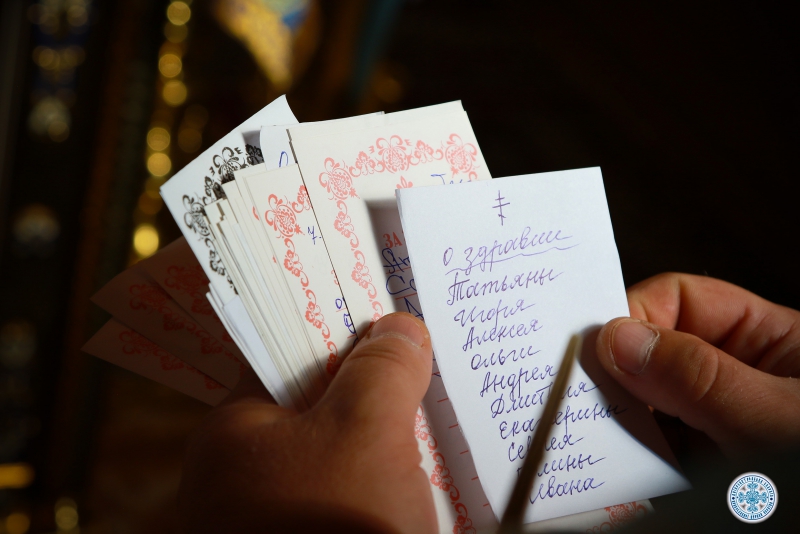 ЗА
о здравии
Татьяны
Игоря
Алексея
Ольги
Андрея
Дмитрия
Екатерины
Сергея
Ивана